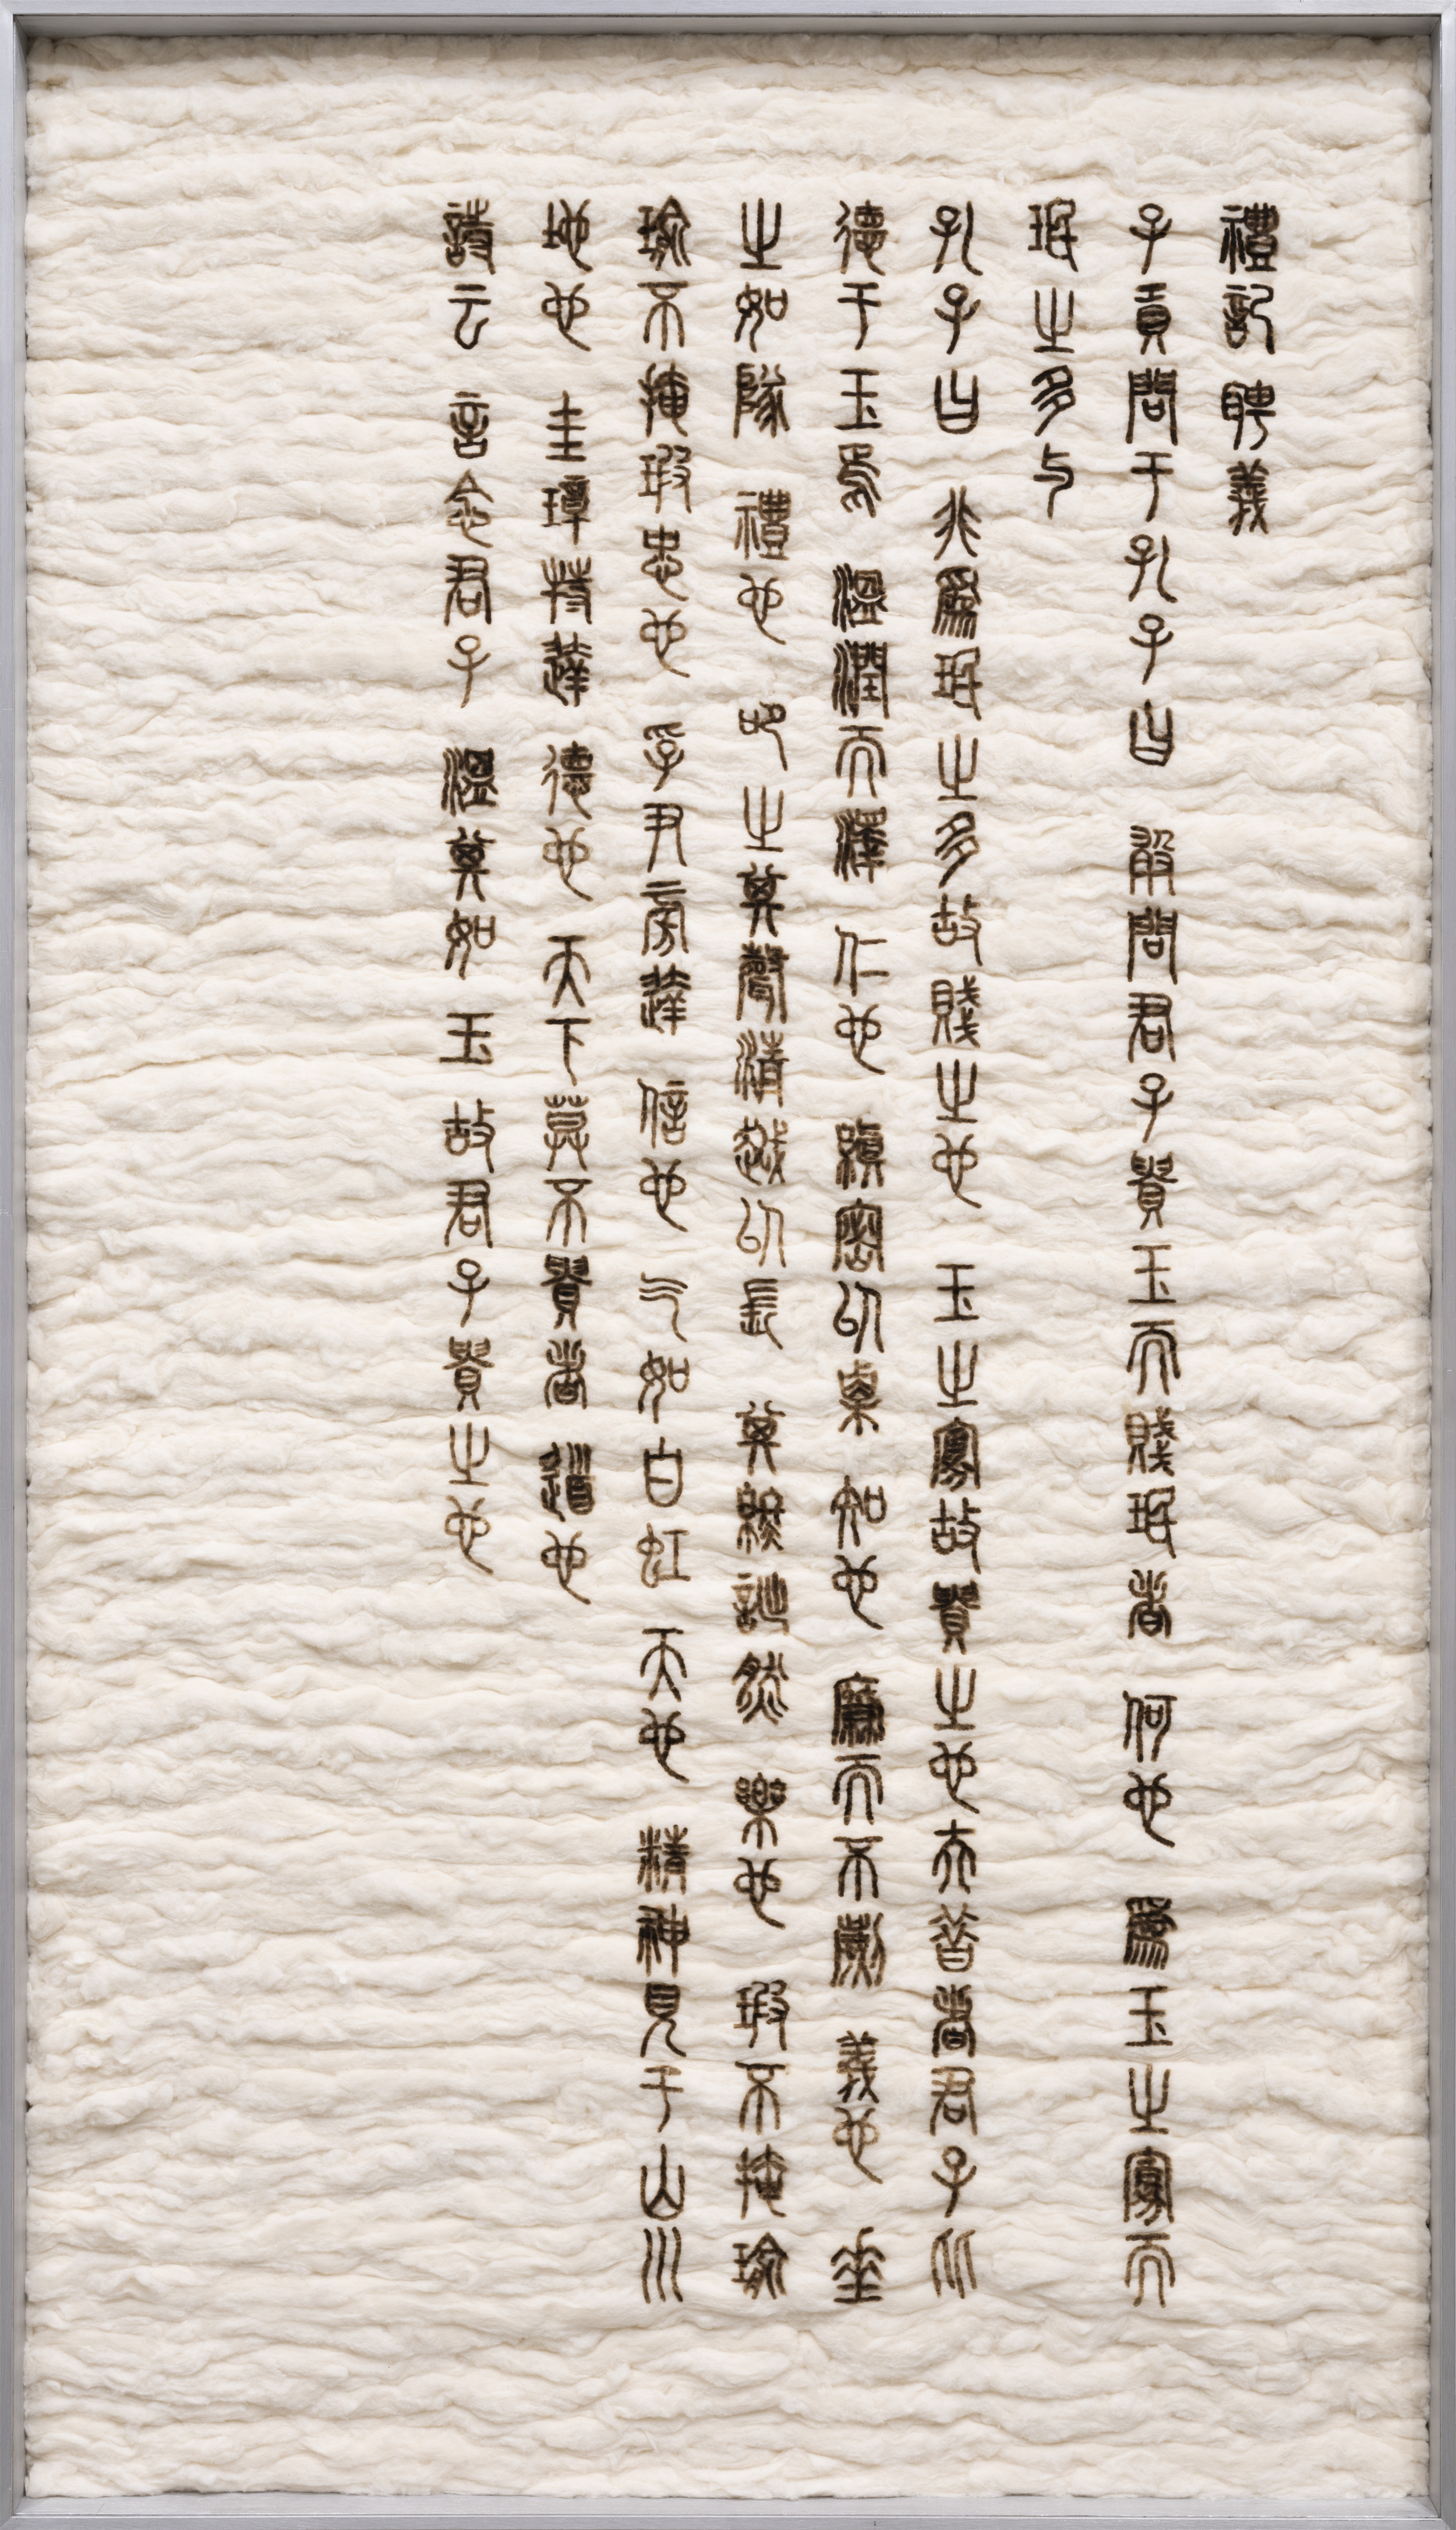 禮記 聘義
子貢問于孔子曰 敢問君子貴玉而賤珉者 何也 爲玉之寡而
珉之多与
孔子曰 非爲珉之多故賤之也 玉之寡故貴之也夫昔者君子比
德于玉焉 溫潤而澤 仁也 縝密以栗 知也 廉而不劌 義也 垂
之如隊 禮也 叩之其聲清越以長 其終詘然 樂也 瑕不掩瑜
瑜不掩瑕忠也 孚尹旁達 信也 气如白虹 天也 精神見于山川
地也 圭璋特達 德也 天下莫不貴者 道也
詩云 言念君子 溫其如玉 故君子貴之也